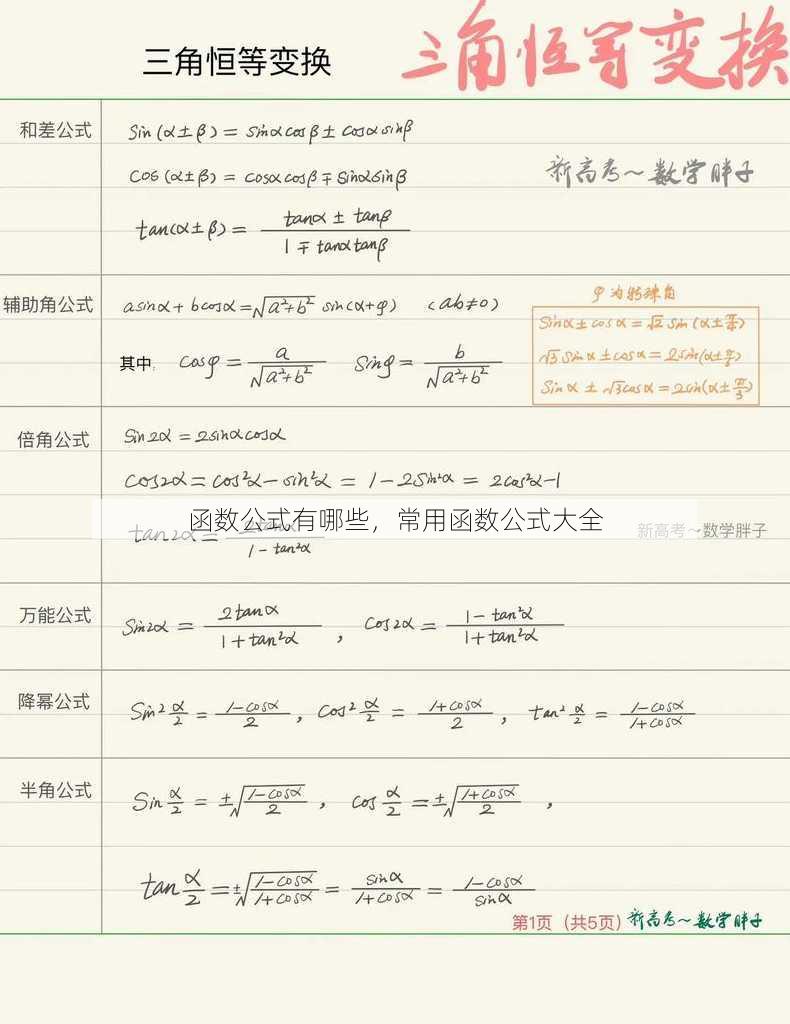 三角恒等变换
三角恒等变换
和差公式
sin(α±β) = sinαcosβ ± cosαsinβ
cos(α±β) = cosαcosβ ∓ sinαsinβ
新高考~数学胖子
tan(α±β) = (tanα ± tanβ)/(1 ∓ tanαtanβ)
辅助角公式
asinα + bcosα = √(a²+b²) sin(α+φ) (ab≠0)
其中, cosφ = a/√(a²+b²) sinφ = b/√(a²+b²)
φ为特殊角
sinα ± cosα = √2 sin(α ± π/4)
√3 sinα ± cosα = 2sin(α ± π/6)
sinα ± √3cosα = 2sin(α ± π/3)
倍角公式
sin2α = 2sinαcosα
cos2α = cos²α − sin²α = 1 − 2sin²α = 2cos²α − 1
函数公式有哪些，常用函数公式大全
tan2α = 2tanα/(1 − tan²α)
新高考~数学胖子
万能公式
sin2α = 2tanα/(1 + tan²α) , cos2α = (1 − tan²α)/(1 + tan²α)
降幂公式
sin² α/2 = (1−cosα)/2 , cos² α/2 = (1+cosα)/2 , tan² α/2 = (1−cosα)/(1+cosα)
半角公式
sin α/2 = ±√((1−cosα)/2) , cos α/2 = ±√((1+cosα)/2) ,
tan α/2 = ±√((1−cosα)/(1+cosα)) = sinα/(1+cosα) = (1−cosα)/sinα
第1页（共5页）新高考~数学胖子